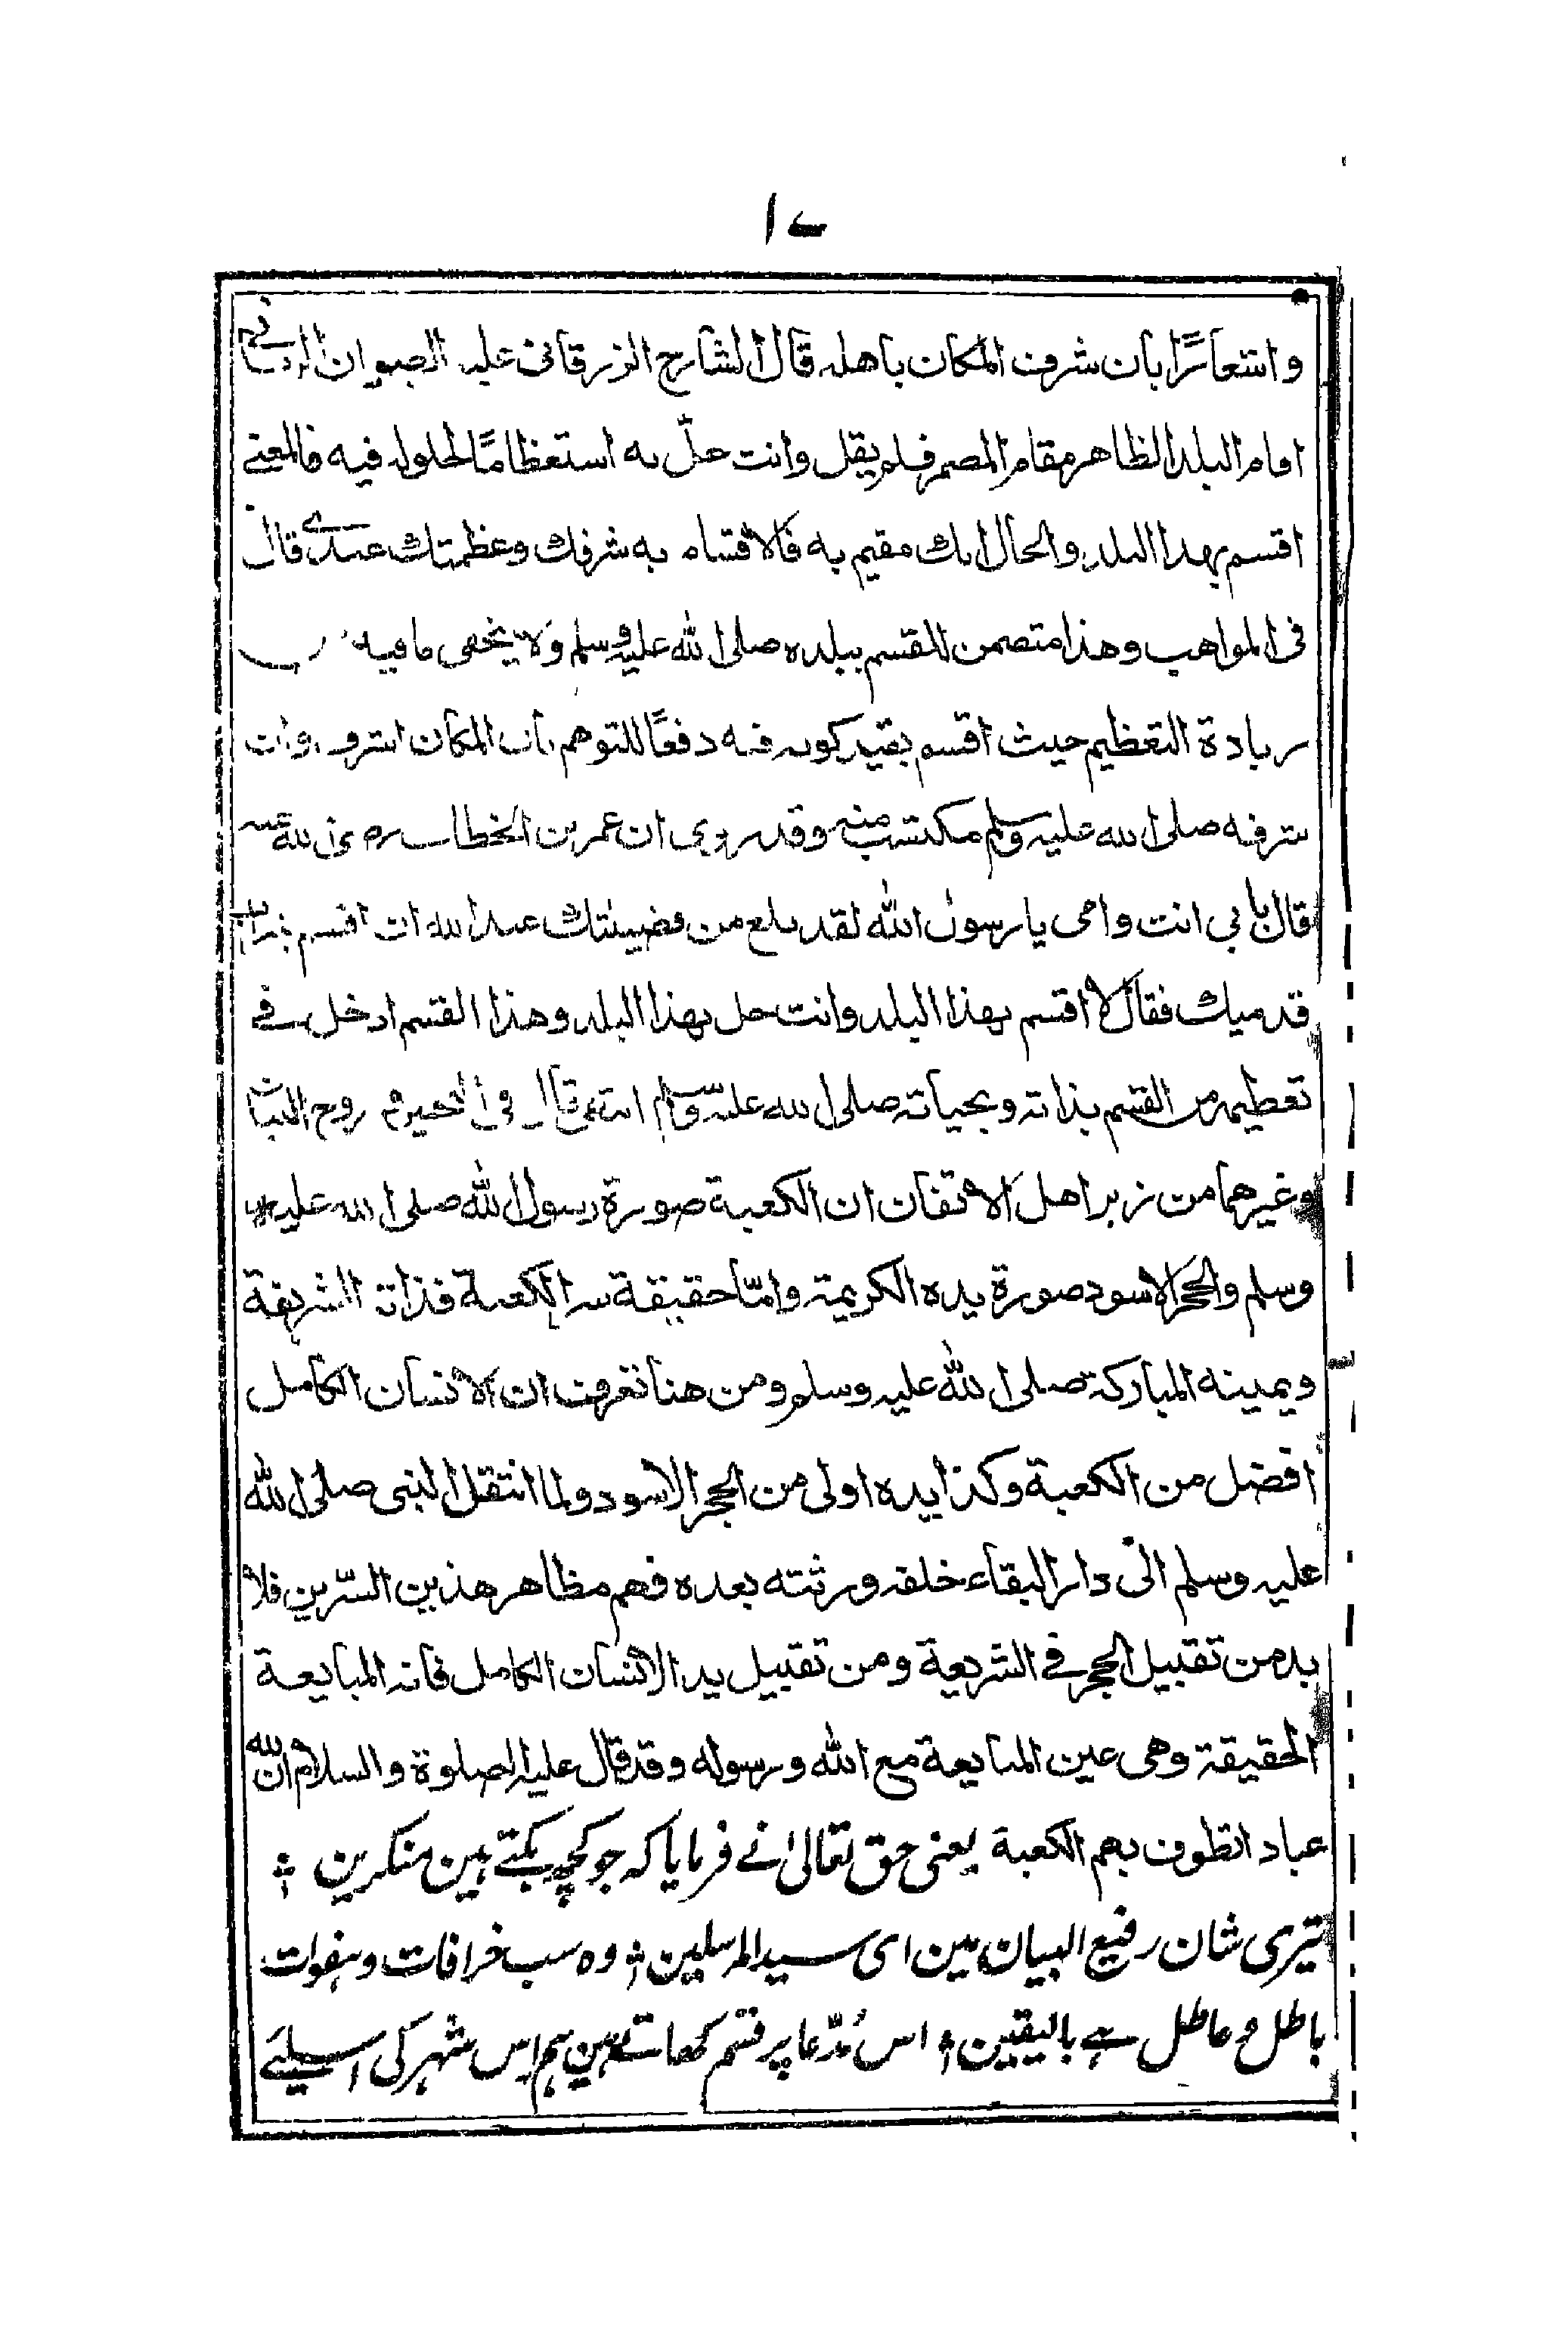 ١٧
واشعارًا بان شرف المكان باهله قال الشارح الزرقانى عليه الرضوان الربانى
اقام البلد الظاهر مقام المضمر فلم يقل وانت حلّ به استعظامًا لحلوله فيه فالمعنى
اقسم بهذا البلد والحال انك مقيم به فالاقسام به شرفك وعظمتك عندى قال
فى المواهب وهذا متضمن للقسم ببلده صلى الله عليه وسلم ولا يخفى ما فيه من
زيادة التعظيم حيث اقسم بقيد كونه فيه دفعًا للتوهم بان المكان اشرف وان
شرفه صلى الله عليه وسلم مكتسب منه وقد روى ان عمر بن الخطاب رضى الله عنه
قال بابى انت وامى يا رسول الله لقد بلغ من فضيلتك عند الله ان اقسم بتراب
قدميك فقال لا اقسم بهذا البلد وانت حل بهذا البلد وهذا القسم ادخل فى
تعظيمه من القسم بذاته وبحياته صلى الله عليه وسلم انتهى قال فى روح البيان
وغيرهما من زبر اهل الاتقان ان الكعبة صورة رسول الله صلى الله عليه
وسلم والحجر الاسود صورة يده الكريمة وامّا حقيقة سر الكعبة فذاته الشريفة
ويمينه المباركة صلى الله عليه وسلم ومن هنا تعرف ان الانسان الكامل
افضل من الكعبة وكذا يده اولى من الحجر الاسود ولما انتقل النبى صلى الله
عليه وسلم الى دار البقاء خلفه ورثته بعده فهم مظاهر هذين السّرين فلا
بد من تقبيل الحجر فى الشريعة ومن تقبيل يد الانسان الكامل فانه المبايعة
الحقيقة وهى عين المبايعة مع الله ورسوله وقد قال عليه الصلوة والسلام ان لله
عبادا تطوف بهم الكعبة یعنی حق تعالیٰ نے فرمایا کہ جو کچھ بکتے ہین منکرین ؞
تیری شان رفیع البیان مین ای سید المرسلین ؞ وہ سب خرافات و ہفوات
باطل و عاطل ہے بالیقین ؞ اس مُدّعا پر قسم کھاتے ہین ہم اِس شہر کی اسلیئے